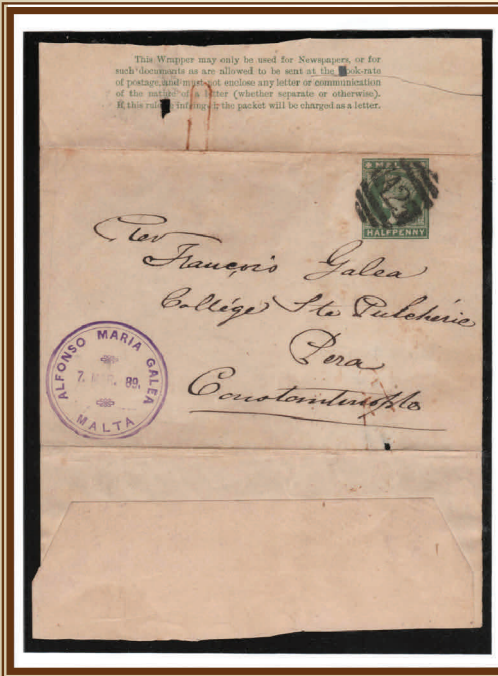 This Wrapper may only be used for Newspapers, or for
such documents as are allowed to be sent at the Book-rate
of postage, and must not enclose any letter or communication
of the nature of a letter (whether separate or otherwise).
If this rule is infringed the packet will be charged as a letter.
HALFPENNY
Rev
François Galea
Collége Ste Pulchérie
Pera
Constantinople
ALFONSO MARIA GALEA
7. 89.
MALTA